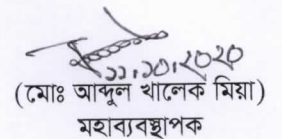 ১১.১০.২০২০
(মোঃ আব্দুল খালেক মিয়া)
মহাব্যবস্থাপক